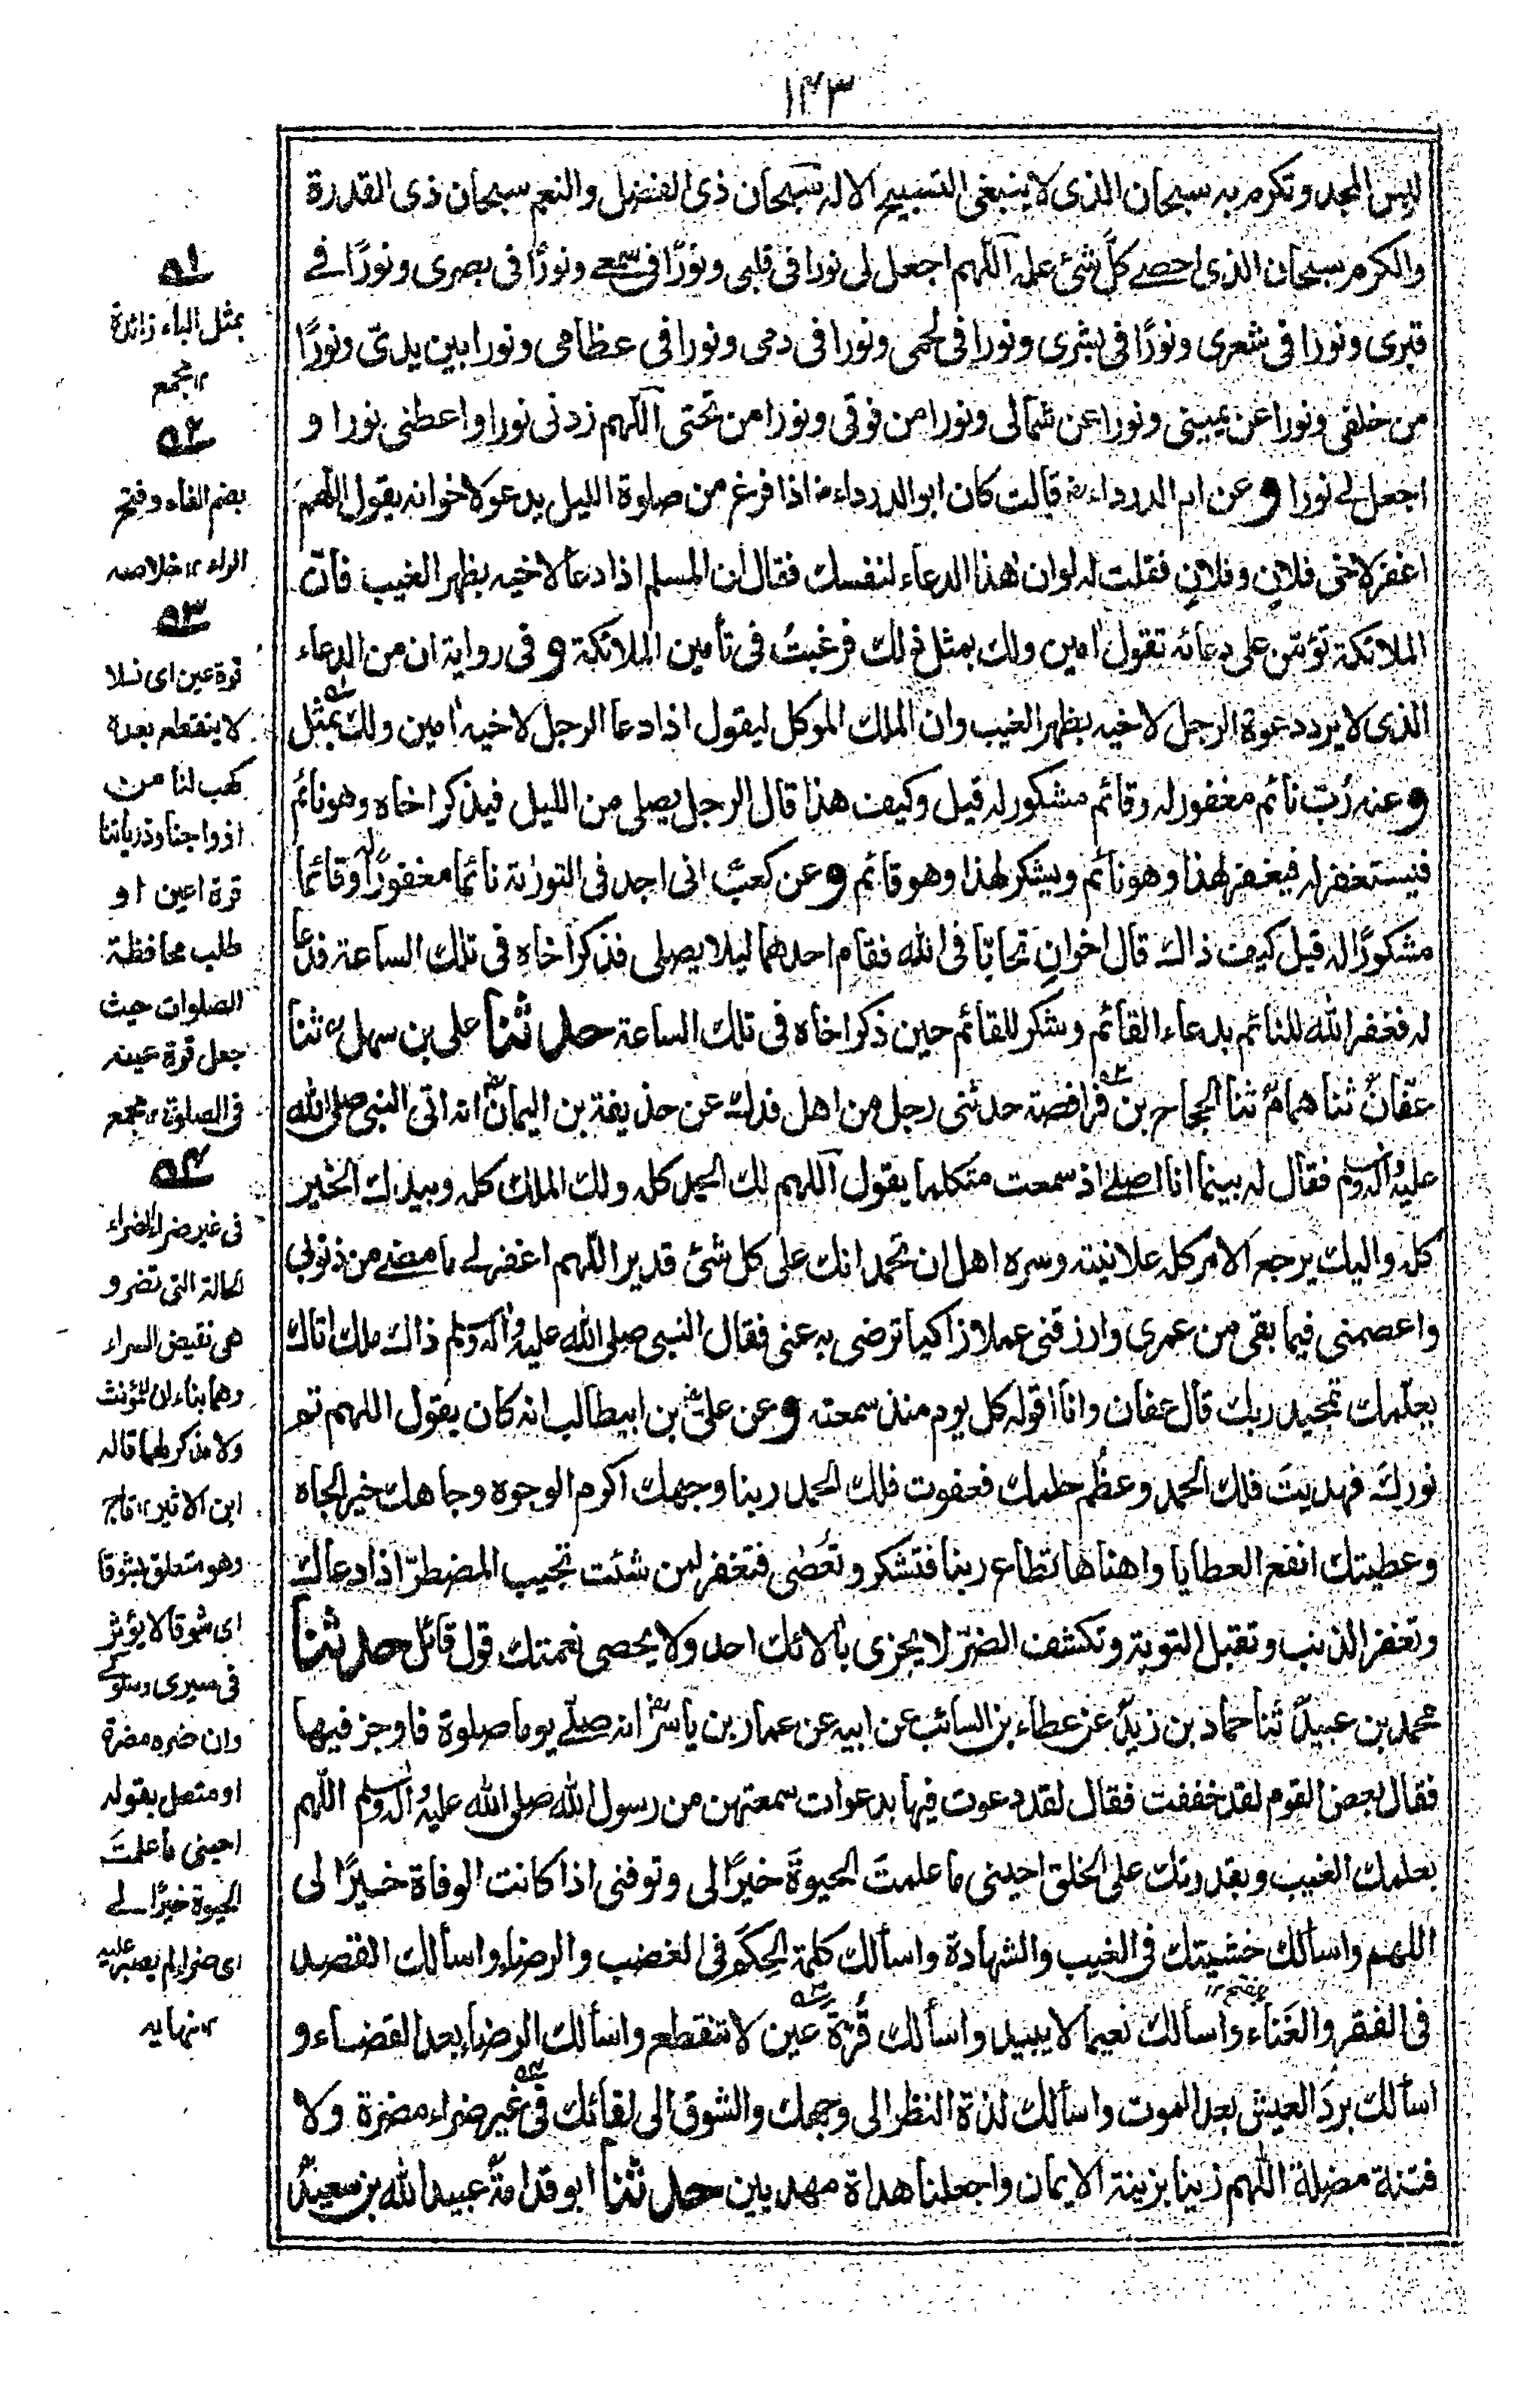 ١٤٣
لبس المجد وتكرم به سبحان الذی لا ينبغی التسبيح الا له سبحان ذی الفضل والنعم سبحان ذی القدرة
والكرم سبحان الذی احصے كلَّ شئ علمه اللّٰهم اجعل لی نورا فی قلبی ونورًا فی سمعے ونورًا فی بصری ونورًا فے
قبری ونورا فی شعری ونورًا فی بشری ونورا فی لحمی ونورا فی دمی ونورا فی عظامی ونورا بين يدیّ ونورًا
من خلفی ونورا عن يمينی ونورا عن شمالی ونورا من فوقی ونورا من تحتی اللّٰهم زدنی نورا واعطنی نورا و
اجعل لے نورا و عن ام الدرداءؓ قالت كان ابو الدرداءؓ اذا فرغ من صلوة الليل يدعو لاخوانه يقول اللّٰهم
اغفر لاخی فلانٍ وفلانٍ فقلت له لو ان هذا الدعاء لنفسك فقال ان المسلم اذا دعا لاخيه بظهر الغيب فانّ
الملائكة تؤمّن على دعائه تقول اٰمين ولك بمثل ذلك فرغبتُ فی تأمين الملائكة و فی رواية ان من الدعاء
الذی لا يرد دعوة الرجل لاخيه بظهر الغيب وان الملك الموكل ليقول اذا دعا الرجل لاخيه اٰمين ولك بمثل
و عنه رُبّ نائم مغفور له وقائم مشكور له قيل وكيف هذا قال الرجل يصلی من الليل فيذكر اخاه وهو نائم
فيستغفر له فيغفر لهذا وهو نائم ويشكر لهذا وهو قائم و عن كعبؓ انی اجد فی التورٰىة نائما مغفورًا له وقائما
مشكورًا له قيل كيف ذاك قال اخوانِ تحابّا فی الله فقام احدهما ليلا يصلی فذكر اخاه فی تلك الساعة فدعا
له فغفر الله للنائم بدعاء القائم وشكر للقائم حين ذكر اخاه فی تلك الساعة حدثنا علی بن سهل ثنا
عفّان ثنا همام ثنا الحجاج بن فرافصة حدثنی رجل من اهل فدك عن حذيفة بن اليمانؓ انه اتی النبی صلى الله
عليه واله وسلم فقال له بينما انا اصلے اذ سمعت متكلما يقول اللّٰهم لك الحمد كله ولك الملك كله وبيدك الخير
كله واليك يرجع الامر كله علانيته وسره اهل ان تحمد انك على كل شئ قدير اللّٰهم اغفر لے ما مضے من ذنوبی
واعصمنی فيما بقی من عمری وارزقنی عملا زاكيا ترضی به عنی فقال النبی صلى الله عليه واله وسلم ذاك ملك اتاك
يعلّمك تحميد ربك قال عفان وانا اقوله كل يوم منذ سمعته و عن علیؓ بن ابيطالب انه كان يقول اللهم تم
نورك فهديتَ فلك الحمد وعظُم حلمك فعفوت فلك الحمد ربنا وجهك اكرم الوجوه وجاهك خير الجاه
وعطيتك انفع العطايا واهناها تطاع ربنا فتشكر وتعصٰى فتغفر لمن شئت تجيب المضطرّ اذا دعاك
وتغفر الذنب وتقبل التوبة وتكشف الضرّ لا يجزی باٰلائك احد ولا يحصی نعمتك قول قائل حدثنا
محمد بن عبيد ثنا حماد بن زيد عن عطاء بن السائب عن ابيه عن عمار بن ياسرؓ انه صلّے يوما صلوة فاوجز فيها
فقال بعض القوم لقد خففت فقال لقد دعوت فيها بدعوات سمعتهن من رسول الله صلى الله عليه واله وسلم اللّٰهم
بعلمك الغيب وبقدرتك على الخلق احينی ما علمتَ الحيوةَ خيرًا لی وتوفنی اذا كانت الوفاة خيرًا لی
اللهم واسألك خشيتك فی الغيب والشهادة واسألك كلمة الحكم فی الغضب والرضاء واسألك القصد
فی الفقر والغَناء واسألك نعيما لا يبيد واسألك قُرَّة عين لا تنقطع واسألك الرضاء بعد القضاء و
اسألك بردَ العيش بعد الموت واسألك لذة النظر الى وجهك والشوق الى لقائك فی غير ضراء مضرة ولا
فتنة مضلة اللّٰهم زينا بزينة الايمان واجعلنا هداة مهديين حدثنا ابو قدامة عبيد الله بن سعيد
١ه
بمثل الباء زائدة
١٢ مجمع
٢ه
بضم الفاء وفتح
الراء ١٢ خلاصه
٣ه
قرة عين ای نسلا
لا ينقطع بعده
كهب لنا من
ازواجنا وذرياتنا
قرة اعين او
طلب محافظة
الصلوات حيث
جعل قرة عينه
فی الصلوة ١٢ مجمع
٤ه
فی غير ضراء الضراء
الحالة التی تضر و
هی نقيض السراء
وهما بناءان للمؤنث
ولا مذكر لهما قاله
ابن الاثير ١٢ تاج
وهو متعلق بشوقا
ای شوقا لا يؤثر
فی سيری وسلوكے
وان ضره مضرة
او متصل بقوله
احينی ما علمتَ
الحيوة خيرًا لے
ای ضراء لم يصبر عليه
١٢ نهايه